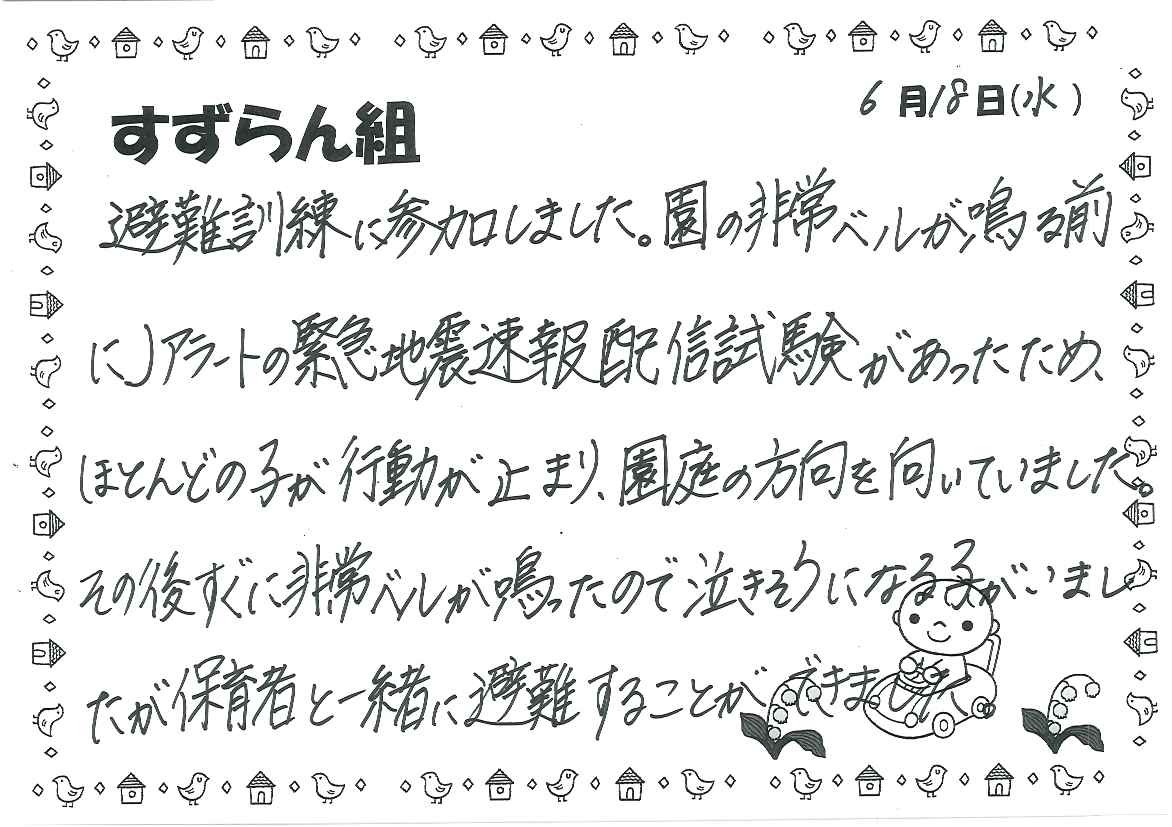 6月18日(水)
すずらん組
避難訓練に参加しました。園の非常ベルが鳴る前
にJアラートの緊急地震速報配信試験があったため、
ほとんどの子が行動が止まり、園庭の方向を向いていました。
その後すぐに非常ベルが鳴ったので泣きそうになる子がいまし
たが保育者と一緒に避難することができました。